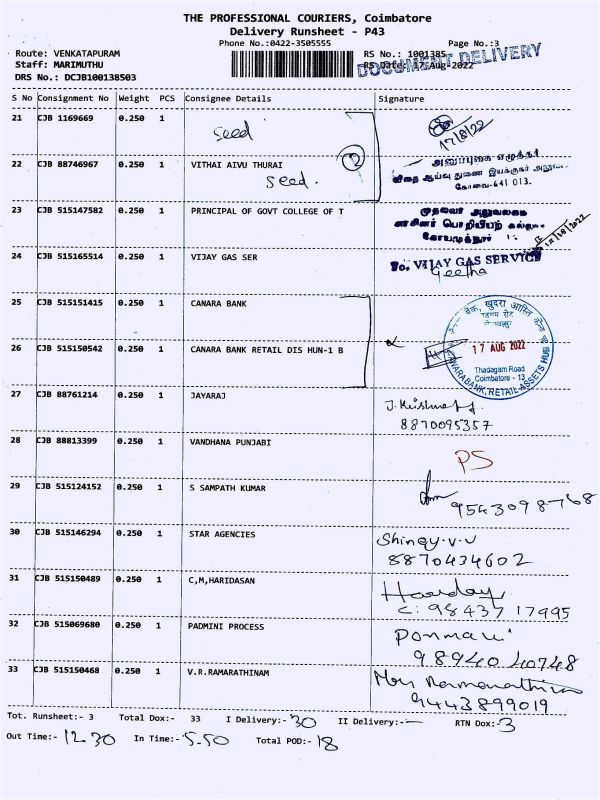 THE PROFESSIONAL COURIERS, Coimbatore
Delivery Runsheet - P43
Phone No.:0422-3505555
Page No.:3
Route: VENKATAPURAM
RS No.: 1001385
Staff: MARIMUTHU
RS Date: 17-Aug-2022
DOCUMENT DELIVERY
DRS No.: DCJB100138503
S No Consignment No Weight PCS Consignee Details Signature
21 CJB 1169669 0.250 1 seed
17/8/22
22 CJB 88746967 0.250 1 VITHAI AIVU THURAI
seed.
2
விதை ஆய்வு துணை இயக்குநர்
கோவை-641 013.
23 CJB 515147582 0.250 1 PRINCIPAL OF GOVT COLLEGE OF T
முதல்வர் அலுவலகம்
24 CJB 515165514 0.250 1 VIJAY GAS SER
VIJAY GAS SERVICE
Geetha
25 CJB 515151415 0.250 1 CANARA BANK
17 AUG 2022
Thadagam Road
Coimbatore - 13
CANARA BANK, RETAIL ASSETS HUB
26 CJB 515150542 0.250 1 CANARA BANK RETAIL DIS HUN-1 B
27 CJB 88761214 0.250 1 JAYARAJ
8870095357
28 CJB 88813399 0.250 1 VANDHANA PUNJABI
PS
29 CJB 515124152 0.250 1 S SAMPATH KUMAR
9543098768
30 CJB 515146294 0.250 1 STAR AGENCIES Shingy.v.v
8870434602
31 CJB 515150489 0.250 1 C,M,HARIDASAN
C: 98437 17995
32 CJB 515069680 0.250 1 PADMINI PROCESS Ponmani
98940 40748
33 CJB 515150468 0.250 1 V.R.RAMARATHINAM
9443899019
Tot. Runsheet:- 3 Total Dox:- 33 I Delivery:- 30 II Delivery:- — RTN Dox:- 3
Out Time:- 12.30 In Time:- 5.50 Total POD:- 18